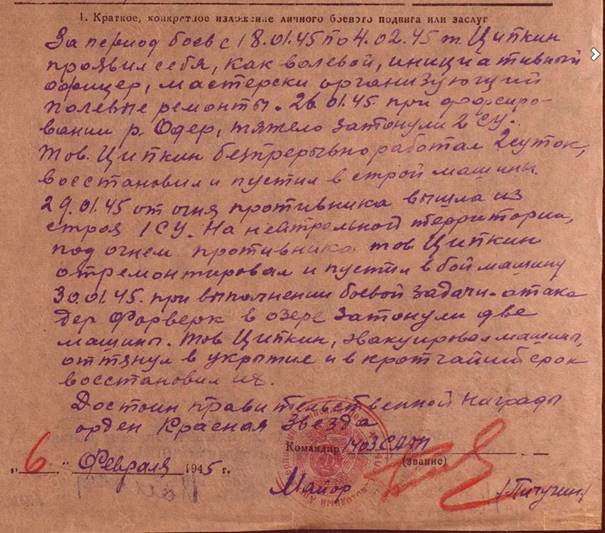 1. Краткое, конкретное изложение личного боевого подвига или заслуг
За период боев с 18.01.45 по 4.02.45 т. Ципкин
проявил себя, как волевой, инициативный
офицер, мастерски организующий
полевые ремонты. 26.01.45 при форсиро-
вании р. Одер, тяжело затонули 2 СУ.
Тов. Ципкин безпрерывно работал 2 суток,
восстановил и пустил в строй машины.
29.01.45 от огня противника вышла из
строя 1 СУ. На нейтральной территории,
под огнем противника тов Ципкин
отремонтировал и пустил в бой машину
30.01.45. при выполнении боевой задачи - атака
дер Форверк в озере затонули две
машины. Тов Ципкин, эвакуировал машины,
оттянул в укрытие и в кротчайший срок
восстановил их.
Достоин правительственной награды
орден Красная Звезда
Командир 
(звание)
"6" Февраля 1945 г.
Майор (Пичугин)